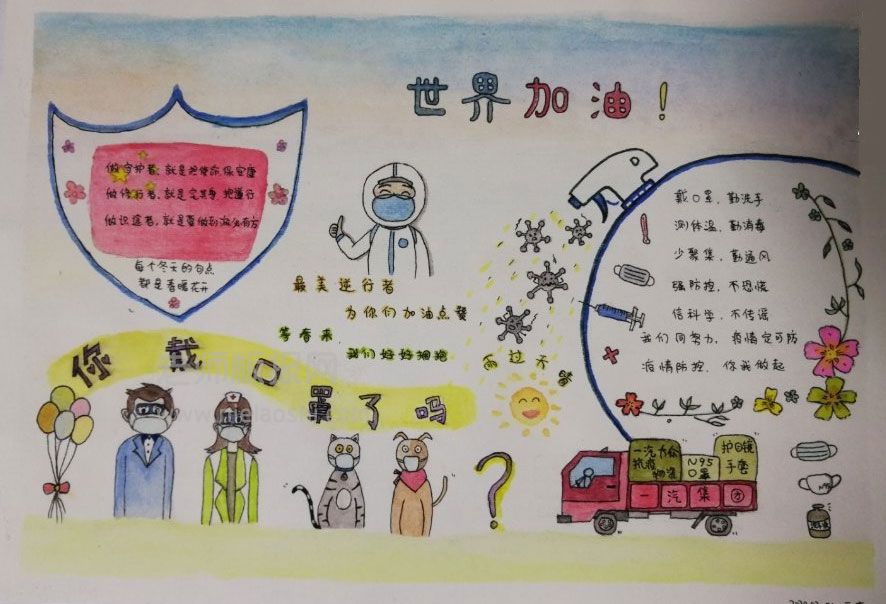 世界加油！
做守护者，就是把使命保安康
做修行者，就是定其身
做识途者，就是要做到
每个冬天的句点
都是春暖花开
最美逆行者
为你们加油点赞
等春来
我们好好拥抱
雨过不晴
你戴口罩了吗
戴口罩、勤洗手
测体温、勤消毒
少聚集、勤通风
强防控、不恐慌
信科学、不传谣
我们同努力，疫情定可防
疫情防控，你我做起
一汽为你
抗疫
物资
N95
口罩
护目镜
手套
一汽集团